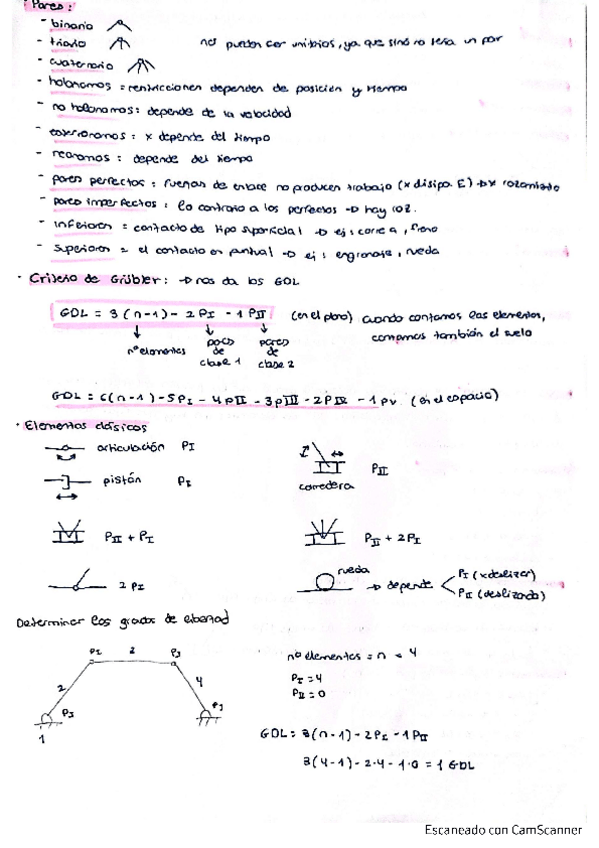 Pares:
- binario
- triario no pueden ser unitarios, ya que sinó no sería un par
- cuaternario
- holonomos = restricciones dependen de posición y tiempo
- no holonomos: depende de la velocidad
- escleronomos = x depende del tiempo
- reonomos : depende del tiempo
- pares perfectos : fuerzas de enlace no producen trabajo (x disipa E) → x rozamiento
- pares imperfectos : lo contrario a los perfectos → hay roz.
- inferiores = contacto de tipo superficial → ej: correa, freno
- superiores = el contacto es puntual → ej: engranaje, rueda
· Criterio de Grübler: → nos da los GDL
GDL = 3(n-1) - 2PI - 1PII (en el plano) cuando contamos los elementos,
contamos también el suelo
nº elementos pares de clase 1 pares de clase 2
GDL = 6(n-1) - 5PI - 4PII - 3PIII - 2PIV - 1PV (en el espacio)
· Elementos clásicos
articulación PI
PII
corredera
pistón PI
PII + PI
PII + 2PI
2PI
rueda → depende PI (x deslizar)
PII (deslizando)
Determinar los grados de libertad
nº elementos = n = 4
PI = 4
PII = 0
GDL = 3(n-1) - 2PI - 1PII
3(4-1) - 2·4 - 1·0 = 1 GDL
Escaneado con CamScanner